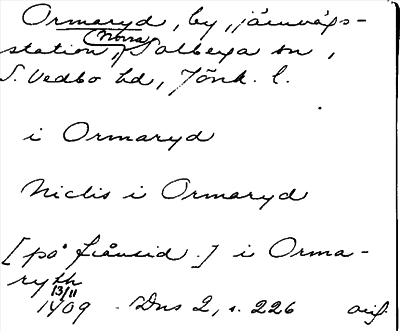 Ormaryd, by, järnvägs-
station, Norra Solberga sn,
S. Vedbo hd, Jönk. l.
i Ormaryd
Niclis i Ormaryd
[på frånsid.] i Orma-
ryth
13/11
1409 Dns 2, s. 226 orig.